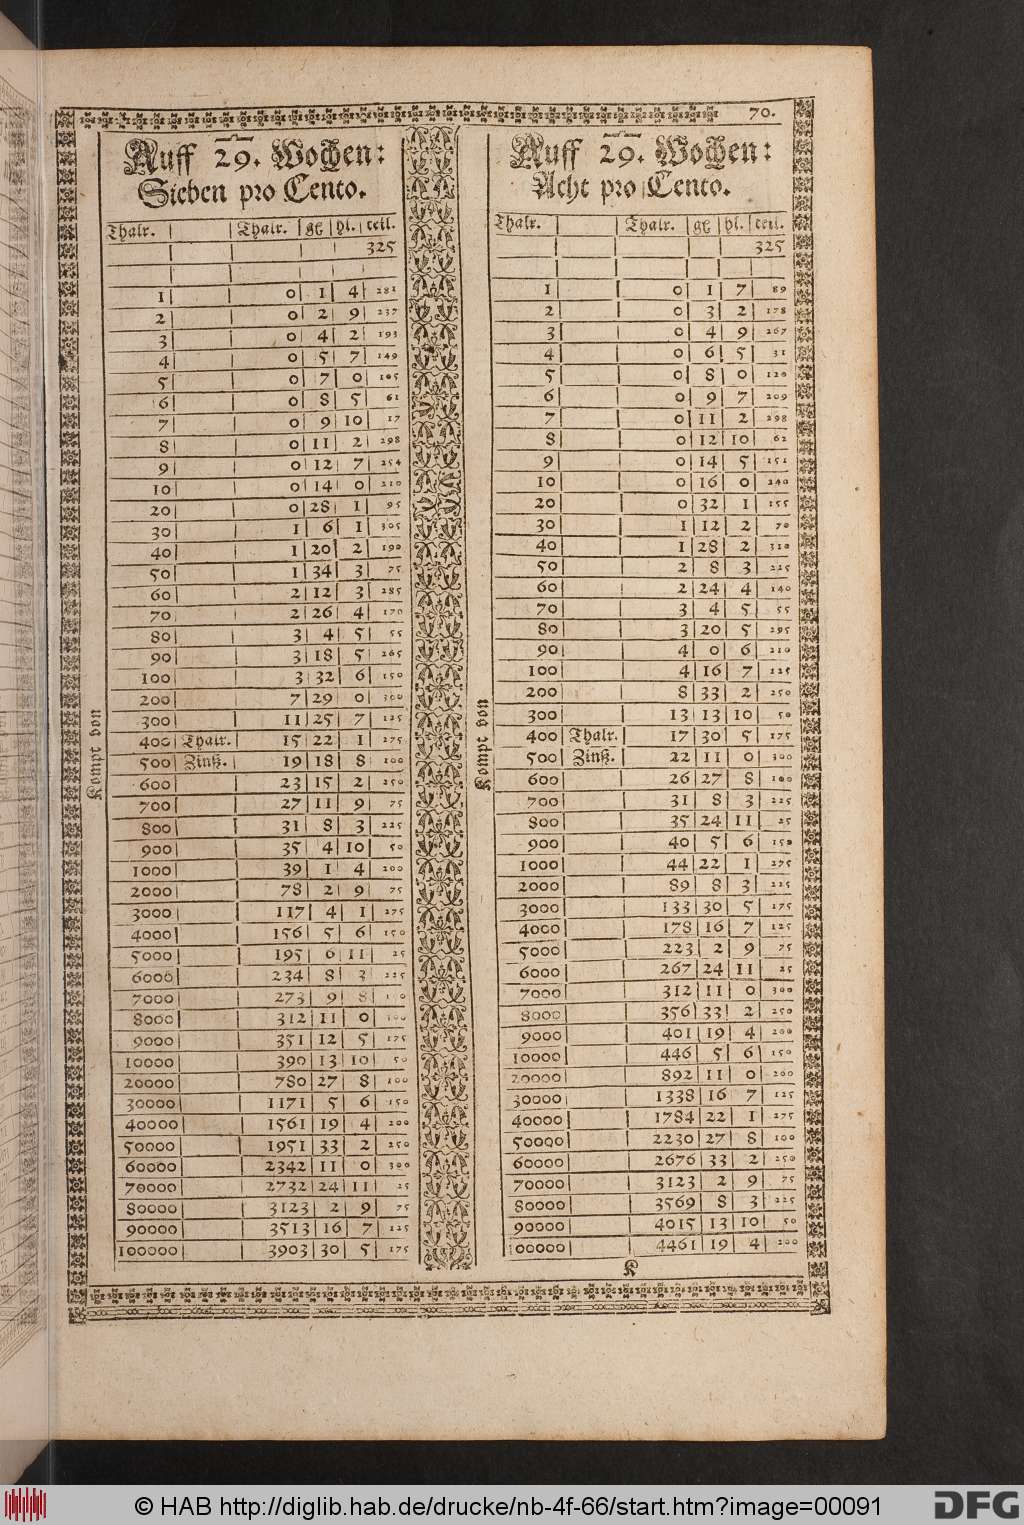 70.
Auff 29. Wochen:
Sieben pro Cento.
Thalr. Thalr. gg hl. teil.
325
1 0 1 4 281
2 0 2 9 237
3 0 4 2 193
4 0 5 7 149
5 0 7 0 105
6 0 8 5 61
7 0 9 10 17
8 0 11 2 298
9 0 12 7 254
10 0 14 0 210
20 0 28 1 95
30 1 6 1 305
40 1 20 2 190
50 1 34 3 75
60 2 12 3 285
70 2 26 4 170
80 3 4 5 55
90 3 18 5 265
100 3 32 6 150
200 7 29 0 300
300 11 25 7 125
400 Thalr. 15 22 1 275
500 Zinß. 19 18 8 100
600 23 15 2 250
700 27 11 9 75
800 31 8 3 225
900 35 4 10 50
1000 39 1 4 200
2000 78 2 9 75
3000 117 4 1 275
4000 156 5 6 150
5000 195 6 11 25
6000 234 8 3 225
7000 273 9 8
8000 312 11 0 300
9000 351 12 5 175
10000 390 13 10 50
20000 780 27 8 100
30000 1171 5 6 150
40000 1561 19 4 200
50000 1951 33 2 250
60000 2342 11 0 300
70000 2732 24 11 25
80000 3123 2 9 75
90000 3513 16 7 125
100000 3903 30 5 175
Kompt von
Auff 29. Wochen:
Acht pro Cento.
Thalr. Thalr. gg hl. teil.
325
1 0 1 7 89
2 0 3 2 178
3 0 4 9 267
4 0 6 5 31
5 0 8 0 120
6 0 9 7 209
7 0 11 2 298
8 0 12 10 62
9 0 14 5 151
10 0 16 0 240
20 0 32 1 155
30 1 12 2 70
40 1 28 2 310
50 2 8 3 225
60 2 24 4 140
70 3 4 5 55
80 3 20 5 295
90 4 0 6 210
100 4 16 7 125
200 8 33 2 250
300 13 13 10 50
400 Thalr. 17 30 5 175
500 Zinß. 22 11 0 300
600 26 27 8 100
700 31 8 3 225
800 35 24 11 25
900 40 5 6 150
1000 44 22 1 275
2000 89 8 3 225
3000 133 30 5 175
4000 178 16 7 125
5000 223 2 9 75
6000 267 24 11 25
7000 312 11 0 300
8000 356 33 2 250
9000 401 19 4 200
10000 446 5 6 150
20000 892 11 0 200
30000 1338 16 7 125
40000 1784 22 1 275
50000 2230 27 8 100
60000 2676 33 2 250
70000 3123 2 9 75
80000 3569 8 3 225
90000 4015 13 10 50
100000 4461 19 4 200
Kompt von
K
© HAB http://diglib.hab.de/drucke/nb-4f-66/start.htm?image=00091
DFG